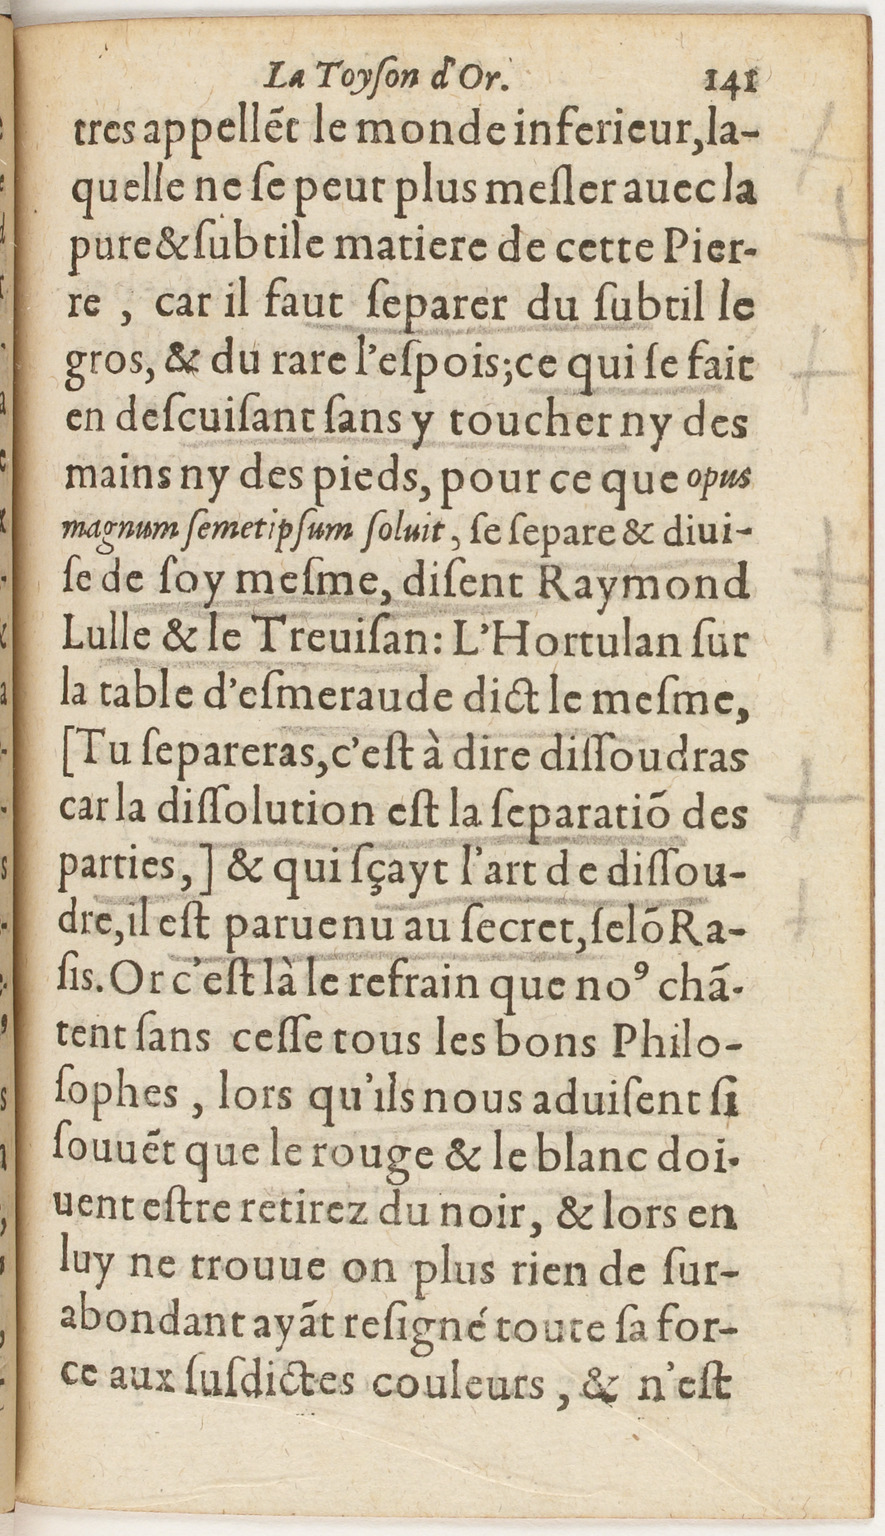 La Toyſon d'Or. 141
tres appellẽt le monde inferieur, la-
quelle ne ſe peut plus meſler auec la
pure & ſubtile matiere de cette Pier-
re , car il faut ſeparer du ſubtil le
gros, & du rare l'eſpois; ce qui ſe fait
en deſcuiſant ſans y toucher ny des
mains ny des pieds, pour ce que opus
magnum ſemetipſum ſoluit, ſe ſepare & diui-
ſe de ſoy meſme, diſent Raymond
Lulle & le Treuiſan: L'Hortulan ſur
la table d'eſmeraude dict le meſme,
[Tu ſepareras, c'eſt à dire diſſoudras
car la diſſolution eſt la ſeparatiõ des
parties, ] & qui ſçayt l'art de diſſou-
dre, il eſt paruenu au ſecret, ſelõ Ra-
ſis. Or c'eſt là le refrain que noꝰ chã-
tent ſans ceſſe tous les bons Philo-
ſophes , lors qu'ils nous aduiſent ſi
ſouuẽt que le rouge & le blanc doi-
uent eſtre retirez du noir, & lors en
luy ne trouue on plus rien de ſur-
abondant ayãt reſigné toute ſa for-
ce aux ſuſdictes couleurs , & n'eſt